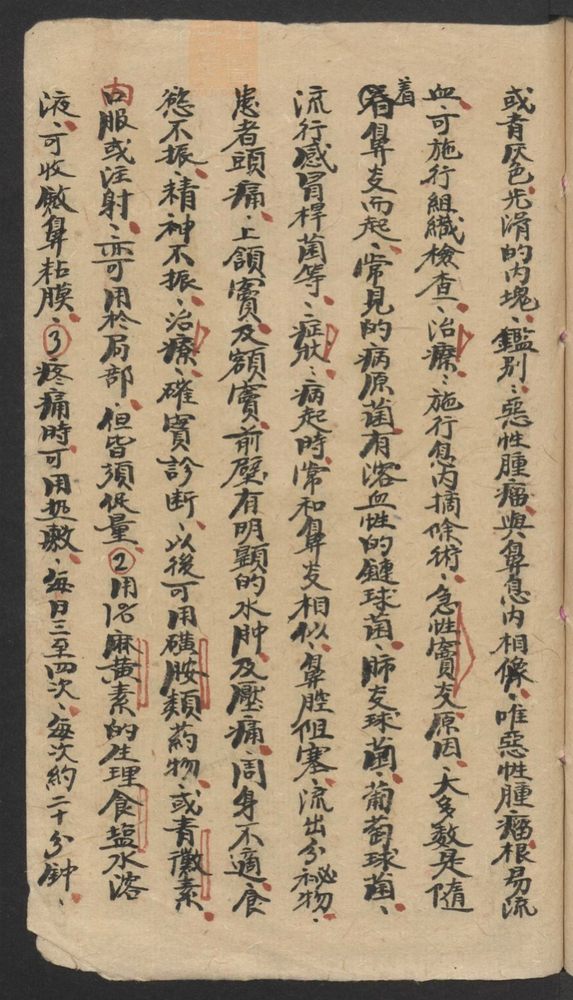 或青灰色光滑的肉塊、鑑别:惡性腫瘤與鼻息肉相像、唯惡性腫瘤根易流
血、可施行組織檢查、治療:施行息肉摘除術、急性竇炎原因、大多數是隨
着鼻炎而起、常見的病原菌有溶血性的鏈球菌、肺炎球菌、葡萄球菌、
流行感冒桿菌等、症狀:病起時常和鼻炎相似、鼻腔阻塞、流出分祕物、
患者頭痛、上頜竇及額竇前壁有明顯的水肿及壓痛、周身不適、食
慾不振、精神不振、治療、確實診断、以後可用磺胺類葯物、或青黴素
内服或注射、亦可用於局部、但皆須低量②用1%麻黄素的生理食塩水溶
液、可收斂鼻粘膜、③疼痛時可用热敷、每日三至四次、每次約二十分鈡、